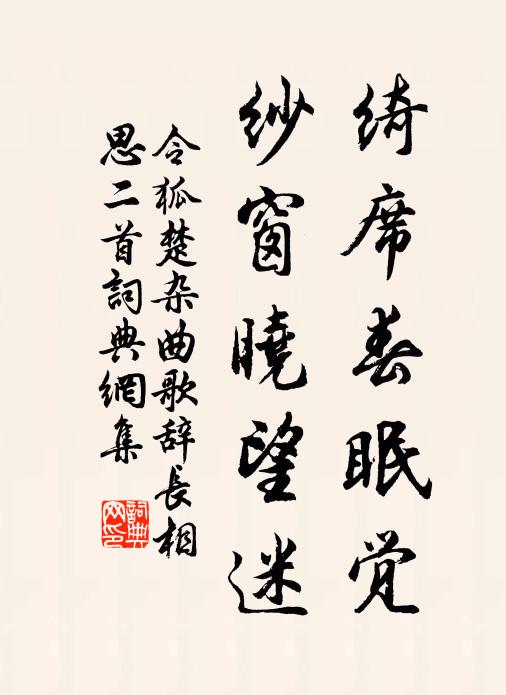 绮席春眠觉
纱窗晓望迷
令狐楚杂曲歌辞长相
思二首词典網集
詞典
网印